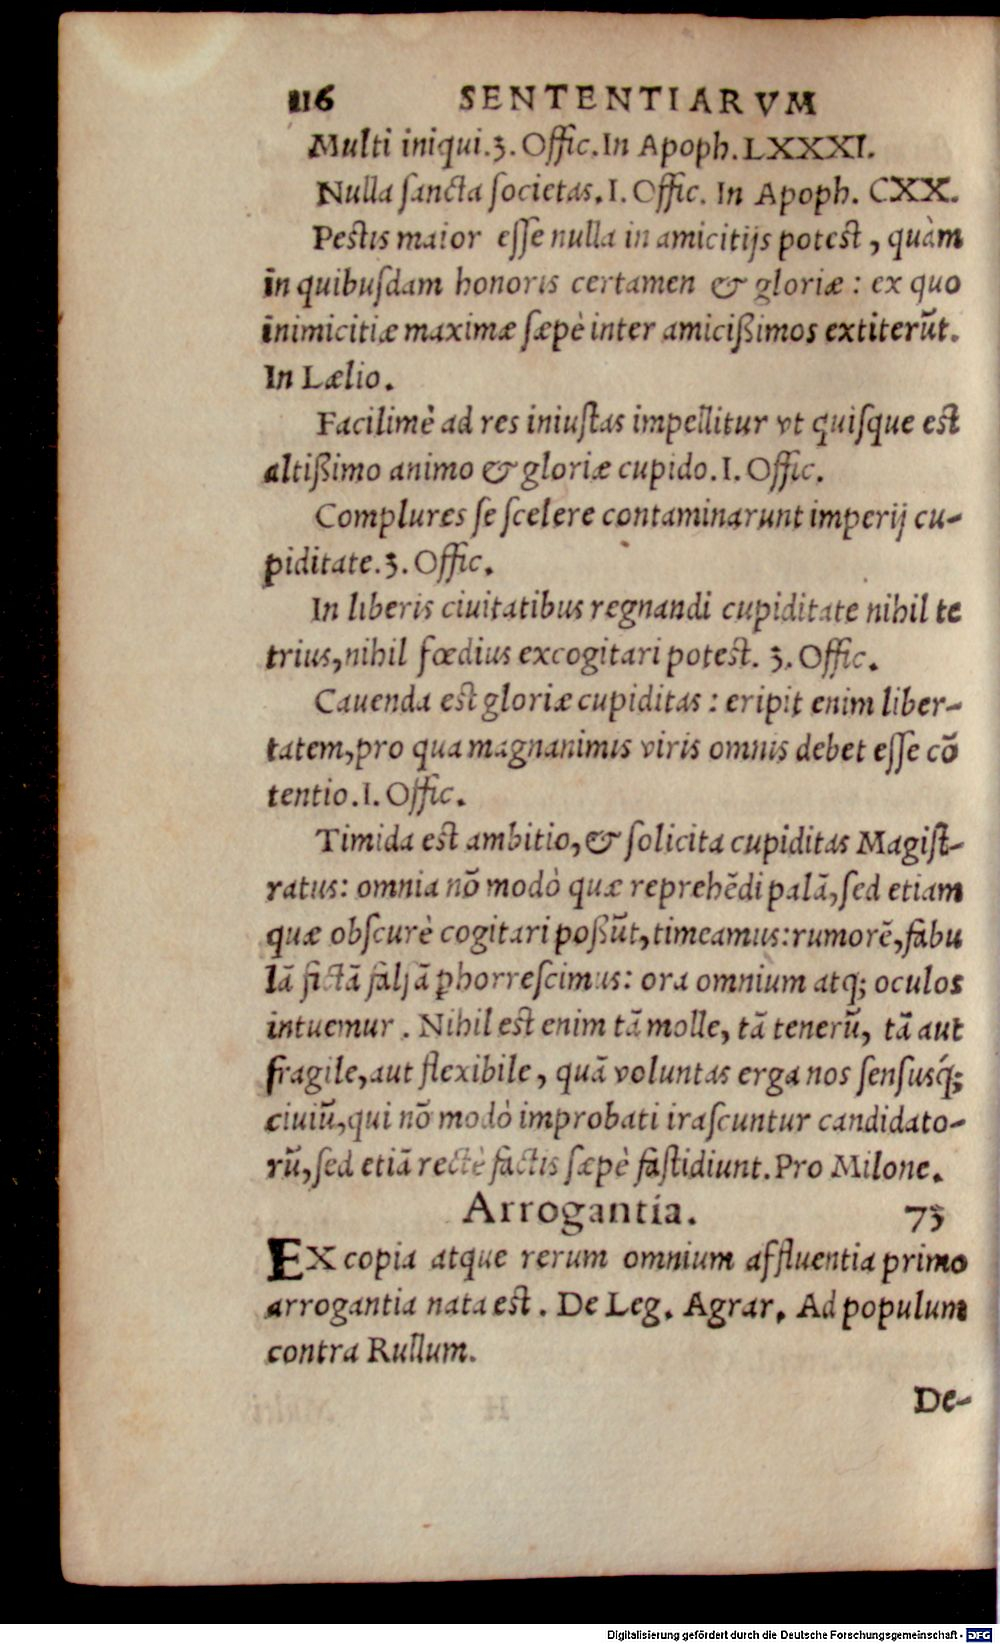 116 SENTENTIARVM
Multi iniqui.3. Offic. In Apoph. LXXXI.
Nulla ſancta ſocietas. I. Offic. In Apoph. CXX.
Pestis maior eſſe nulla in amicitijs potest, quàm
in quibuſdam honoris certamen & gloriæ: ex quo
inimicitiæ maximæ ſæpè inter amicißimos extiterũt.
In Lælio.
Facilimè ad res iniuſtas impellitur vt quiſque est
altißimo animo & gloriæ cupido. I. Offic.
Complures ſe ſcelere contaminarunt imperij cu-
piditate. 3. Offic.
In liberis ciuitatibus regnandi cupiditate nihil te
trius, nihil fœdius excogitari potest. 3. Offic.
Cauenda est gloriæ cupiditas: eripit enim liber-
tatem, pro qua magnanimis viris omnis debet eſſe cō
tentio. I. Offic.
Timida est ambitio, & ſolicita cupiditas Magiſt-
ratus: omnia nō modò quæ reprehēdi palā, ſed etiam
quæ obſcurè cogitari poßũt, timeamus: rumorē, fabu
lā fictā falſā ꝑhorreſcimus: ora omnium atq; oculos
intuemur. Nihil est enim tā molle, tā tenerũ, tā aut
fragile, aut flexibile, quā voluntas erga nos ſenſusq́;
ciuiũ, qui nō modò improbati iraſcuntur candidato-
rũ, ſed etiā rectè factis ſæpè faſtidiunt. Pro Milone.
Arrogantia. 75
EX copia atque rerum omnium affluentia primo
arrogantia nata est. De Leg. Agrar. Ad populum
contra Rullum.
De-
Digitalisierung gefördert durch die Deutsche Forschungsgemeinschaft - DFG